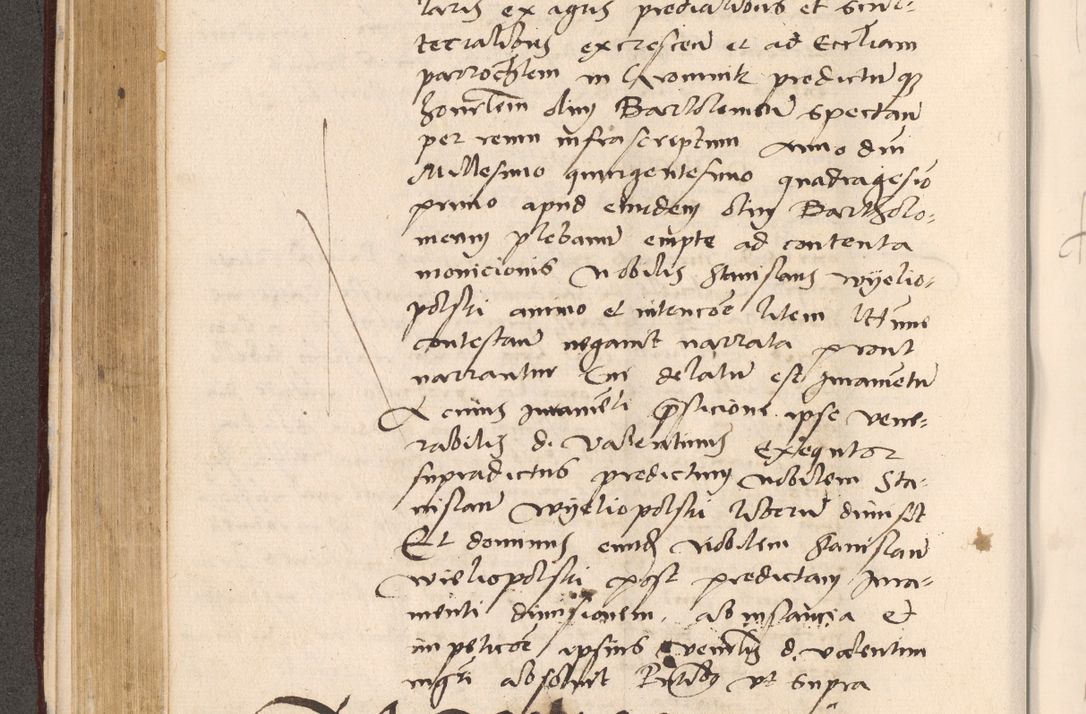 laris ex agris predialibus et
terralibus excrescen et ad Eccliam
parrochlem in Cromnik predictu
olim Bartolomeu spectan
per reum infrascriptum Anno dni
Millesimo quingentesimo quadragesio
primo apud eundem olim Bartholo-
meum plebanu empte ad contenta
monicionis Nobilis Stanislaus Wyelio-
polski animo et intencoe litem
contestan negavit narrata prout
narrantur Cui delatu est Juramentu
A cuius Juramenti ipse vene-
rabilis d. Valentinus Exequtor
supradictus predictum Nobilem Sta-
nislau Wyeliopolski liberu dimisit
Et dominus eund Nobilem Stanislau
Wieliopolski post predictam Jura-
menti dimisionem, ab instancia et
impeticoe ipsius venlis d. Valentini
absolvit ut supra